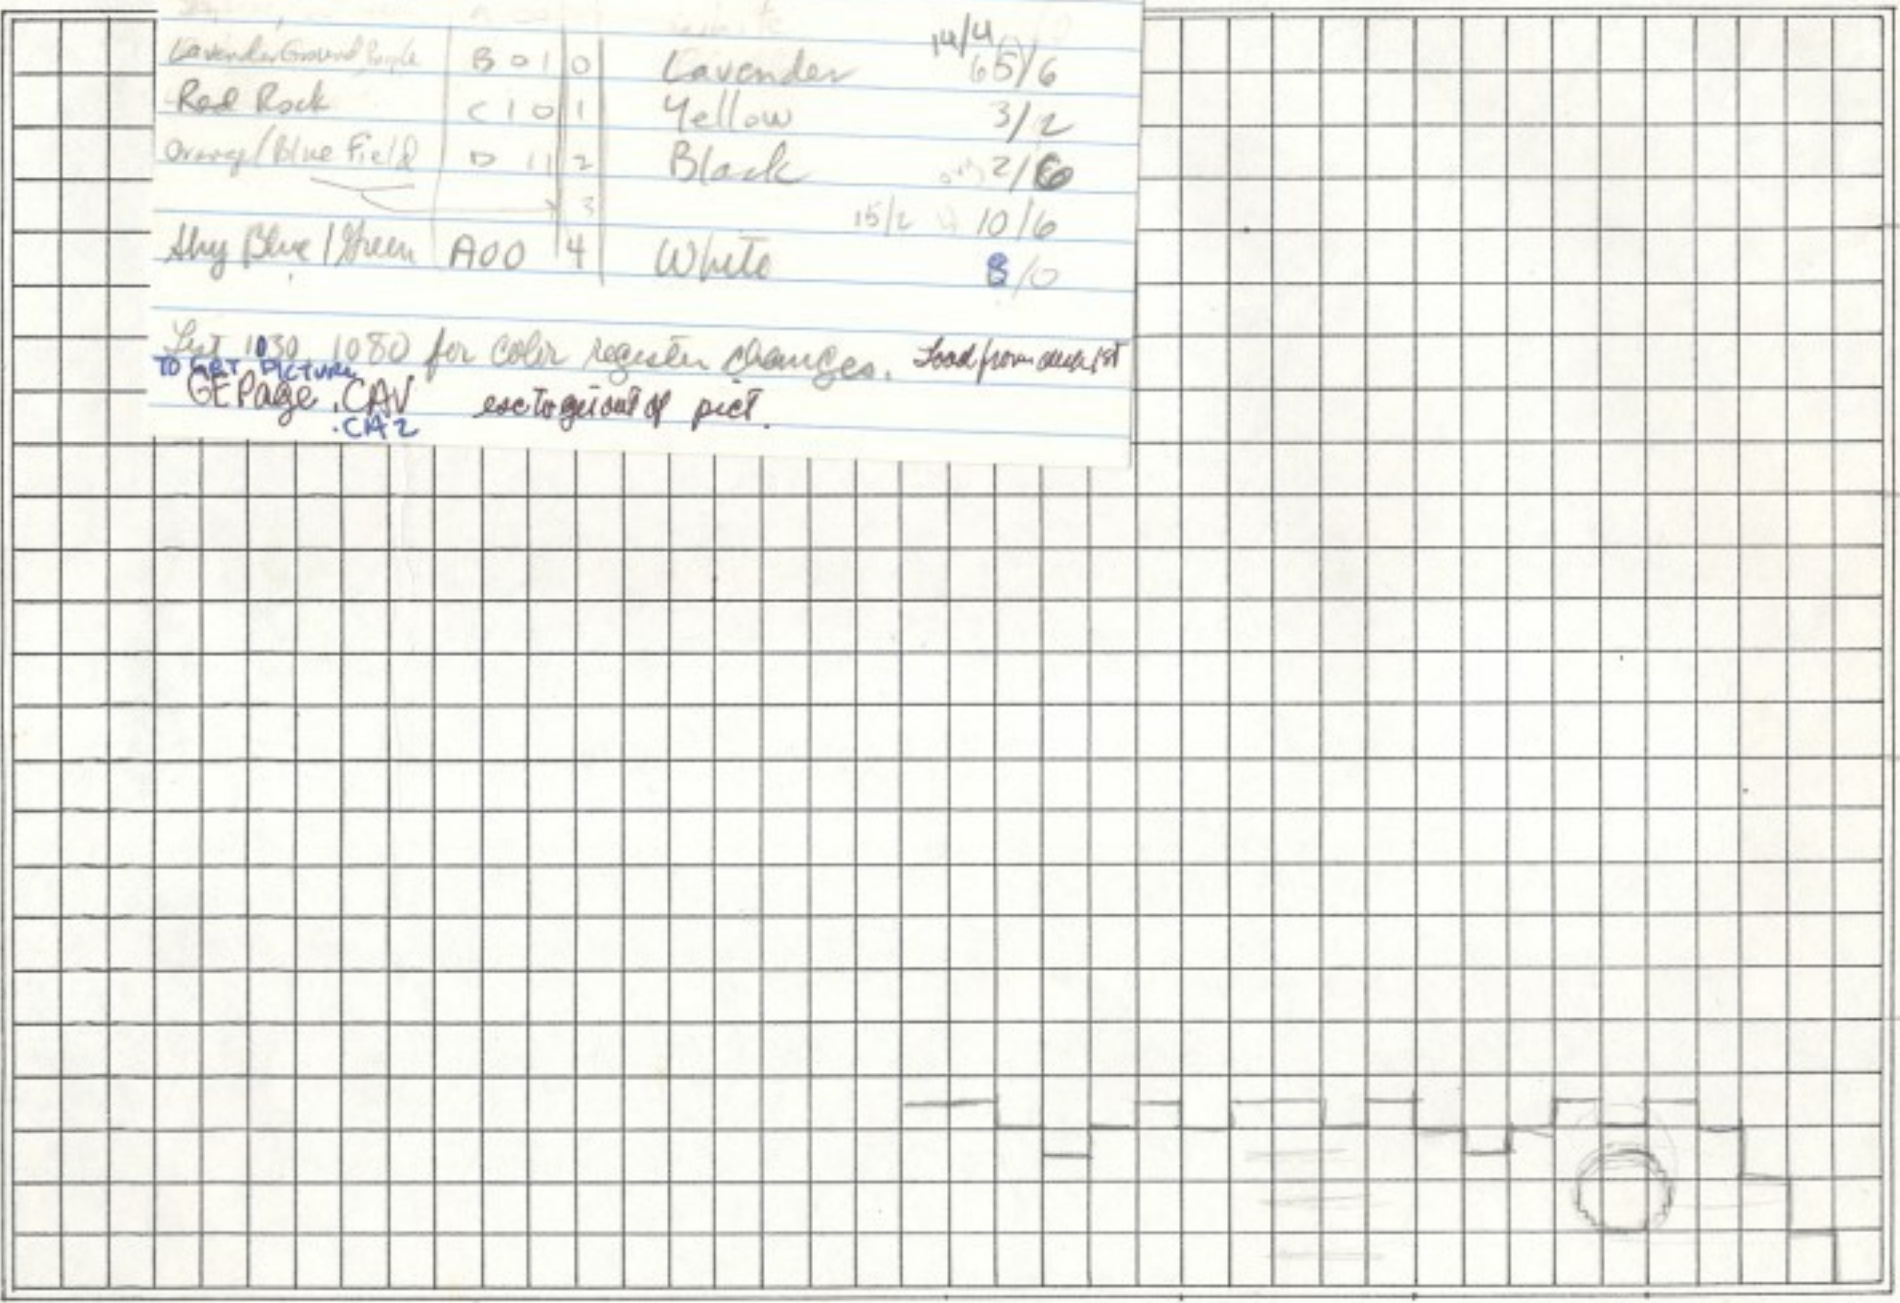 14/4
Lavender Ground Purple B 0 1 0 Lavender 6 5/6
Red Rock C 1 0 1 Yellow 3/2
Orange/Blue Field D 1 1 2 Black 2/6
3 15/2 10/6
Sky Blue / Green A 0 0 4 White 8/0
List 1030 1080 for color register changes. Load from 1st
TO GET PICTURE
GEPage .CAV esc to get out of pict.
.CA2